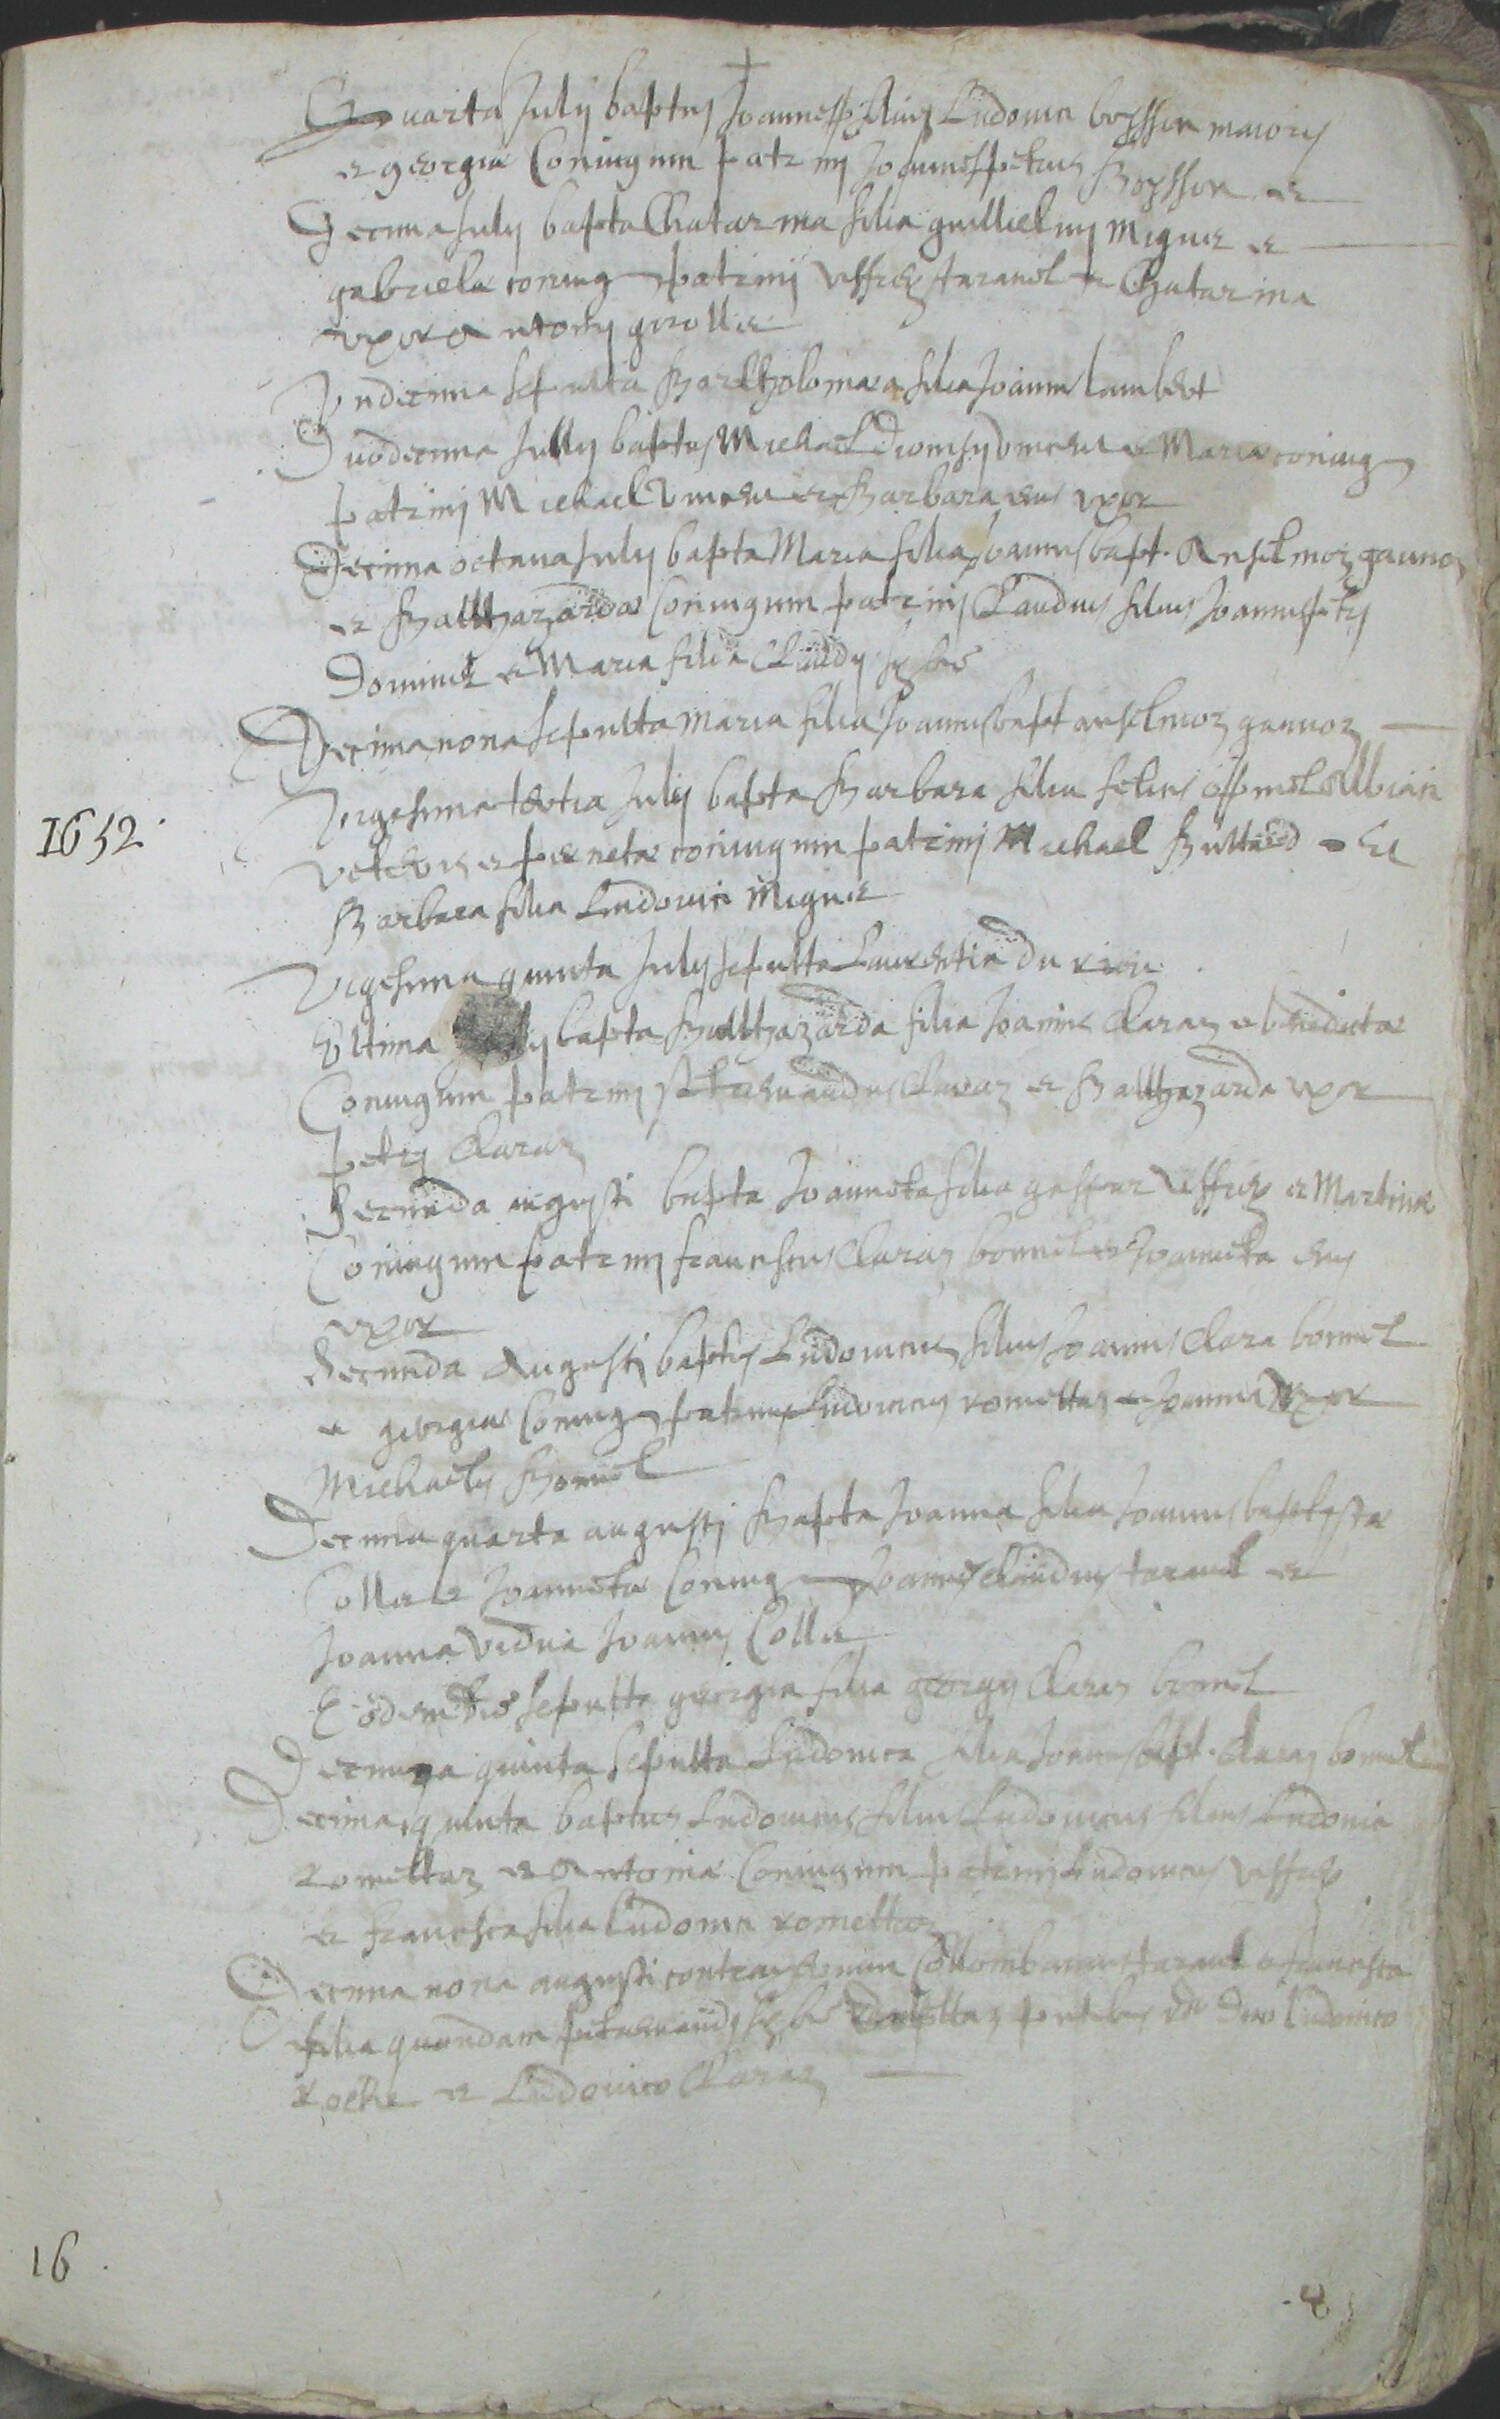 Quarta Julij baptus Joannes filius Ludovici boysson maioris
et georgiæ Coniugum patrinj Joannespetrus Boysson et
Decima Julij bapta Chatarina filia guillielmj Mignie et
gabrielæ coniug patrinij Veffrey taranel et Chatarina
vxor Antonij gerollie
Vndecima sepulta Bartholomæa filia Joannis lambert
Duodecima Jullij baptus Michael Dionisij et Mariæ coniug
patrinj Michael et Barbara eius vxor
Decima octaua Julij bapta Maria filia Joannis bapt. Anselmoz gauuoz
et Balthazardæ Coniugum patrinj Claudius filius Joannis petri
Dominic et Maria filia Claudij
Decima nona sepulta Maria filia Joannis bapt anselmoz gauuoz
Vigesima tertia Julij bapta Barbara filia felicis
et pernetæ coniugum patrinj Michael Bulliard et
1652.
Barbara filia Ludovici Mignie
Vigesima quinta Julij sepulta Laurentia du rieu
Vltima bapta Balthazarda filia Joannis Claraz et benedictæ
Coniugum patrinj Petrus claudus Claraz et Balthazarda vxor
petrj Claraz
Secunda augusti bapta Joanneta filia gaspar Veffrey et Martinæ
Coniugum patrinj franciscus Claraz bonnel et Joanneta eius
vxor
Secunda Augusti baptus Ludovicus filius Joannis Clara bonnel
et georgiæ Coniug patrinj Ludovicus romettaz et Joanna Vxor
Michaelis Bonnel
Decima quarta augusti Bapta Joanna filia Joannis baptistæ
Collie et Joannetæ Coniug Joannes Claudius taranel et
Joanna vidua Joannis Collie
Eodem die sepulta georgia filia georgij Claraz bonnel
Decima quinta sepulta Ludovica filia Joannis bapt. Claraz bonnel
Decima quinta baptus Ludovicus filius Ludovicus filius Ludovici
romettaz et Antoniæ Coniugum patrinj Ludovicus Veffrey
et francisca filia Ludovici romettaz
Decima nona augusti Collombanus taranel et francisca
filia quondam romettaz Ludovico
roche et Ludovico Claraz
16.
8